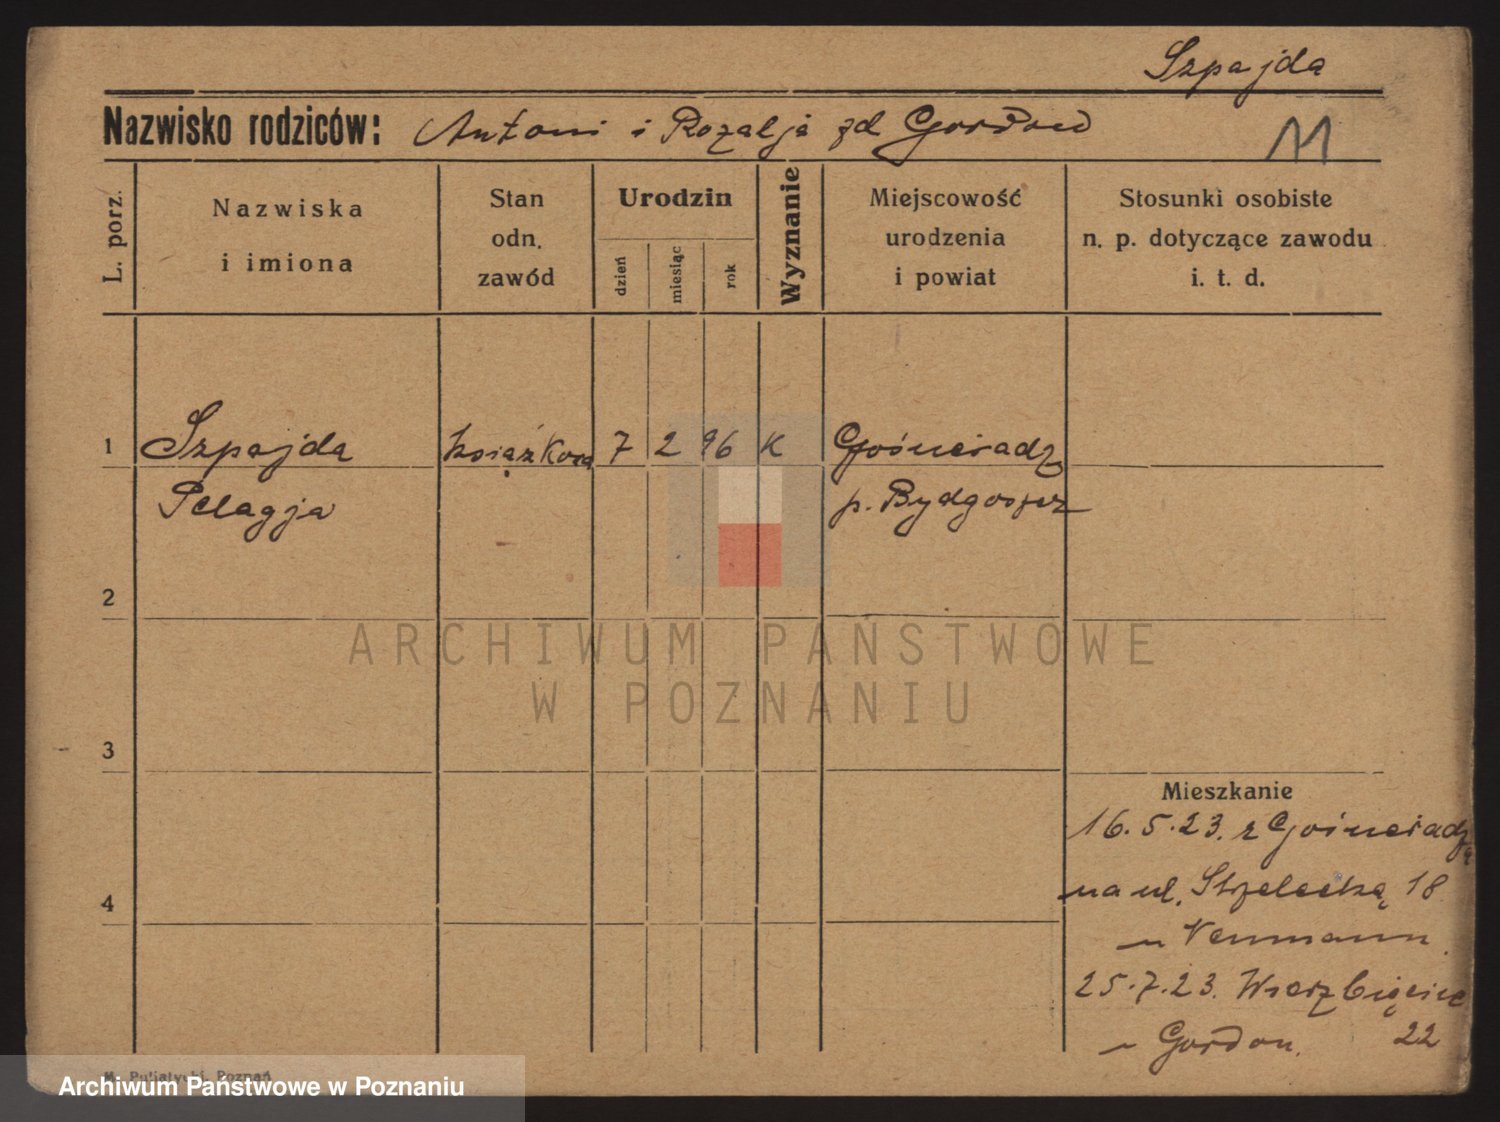 Szpajda
Nazwisko rodziców: Antoni i Rozalja zd Gordon
11
L. porz.
Nazwiska
i imiona
Stan
odn.
zawód
Urodzin
dzień
miesiąc
rok
Wyznanie
Miejscowość
urodzenia
i powiat
Stosunki osobiste
n. p. dotyczące zawodu
i. t. d.
1 Szpajda 7 2 96 K Gościeradz
Pelagja p. Bydgoszcz
2
3
4
Mieszkanie
16.5.23. z Gościeradza
na ul. Strzelecką 18
u Neumann.
25.7.23. Wierzbięcice
u Gordon. 22
ARCHIWUM PAŃSTWOWE
W POZNANIU
Poznań
Archiwum Państwowe w Poznaniu